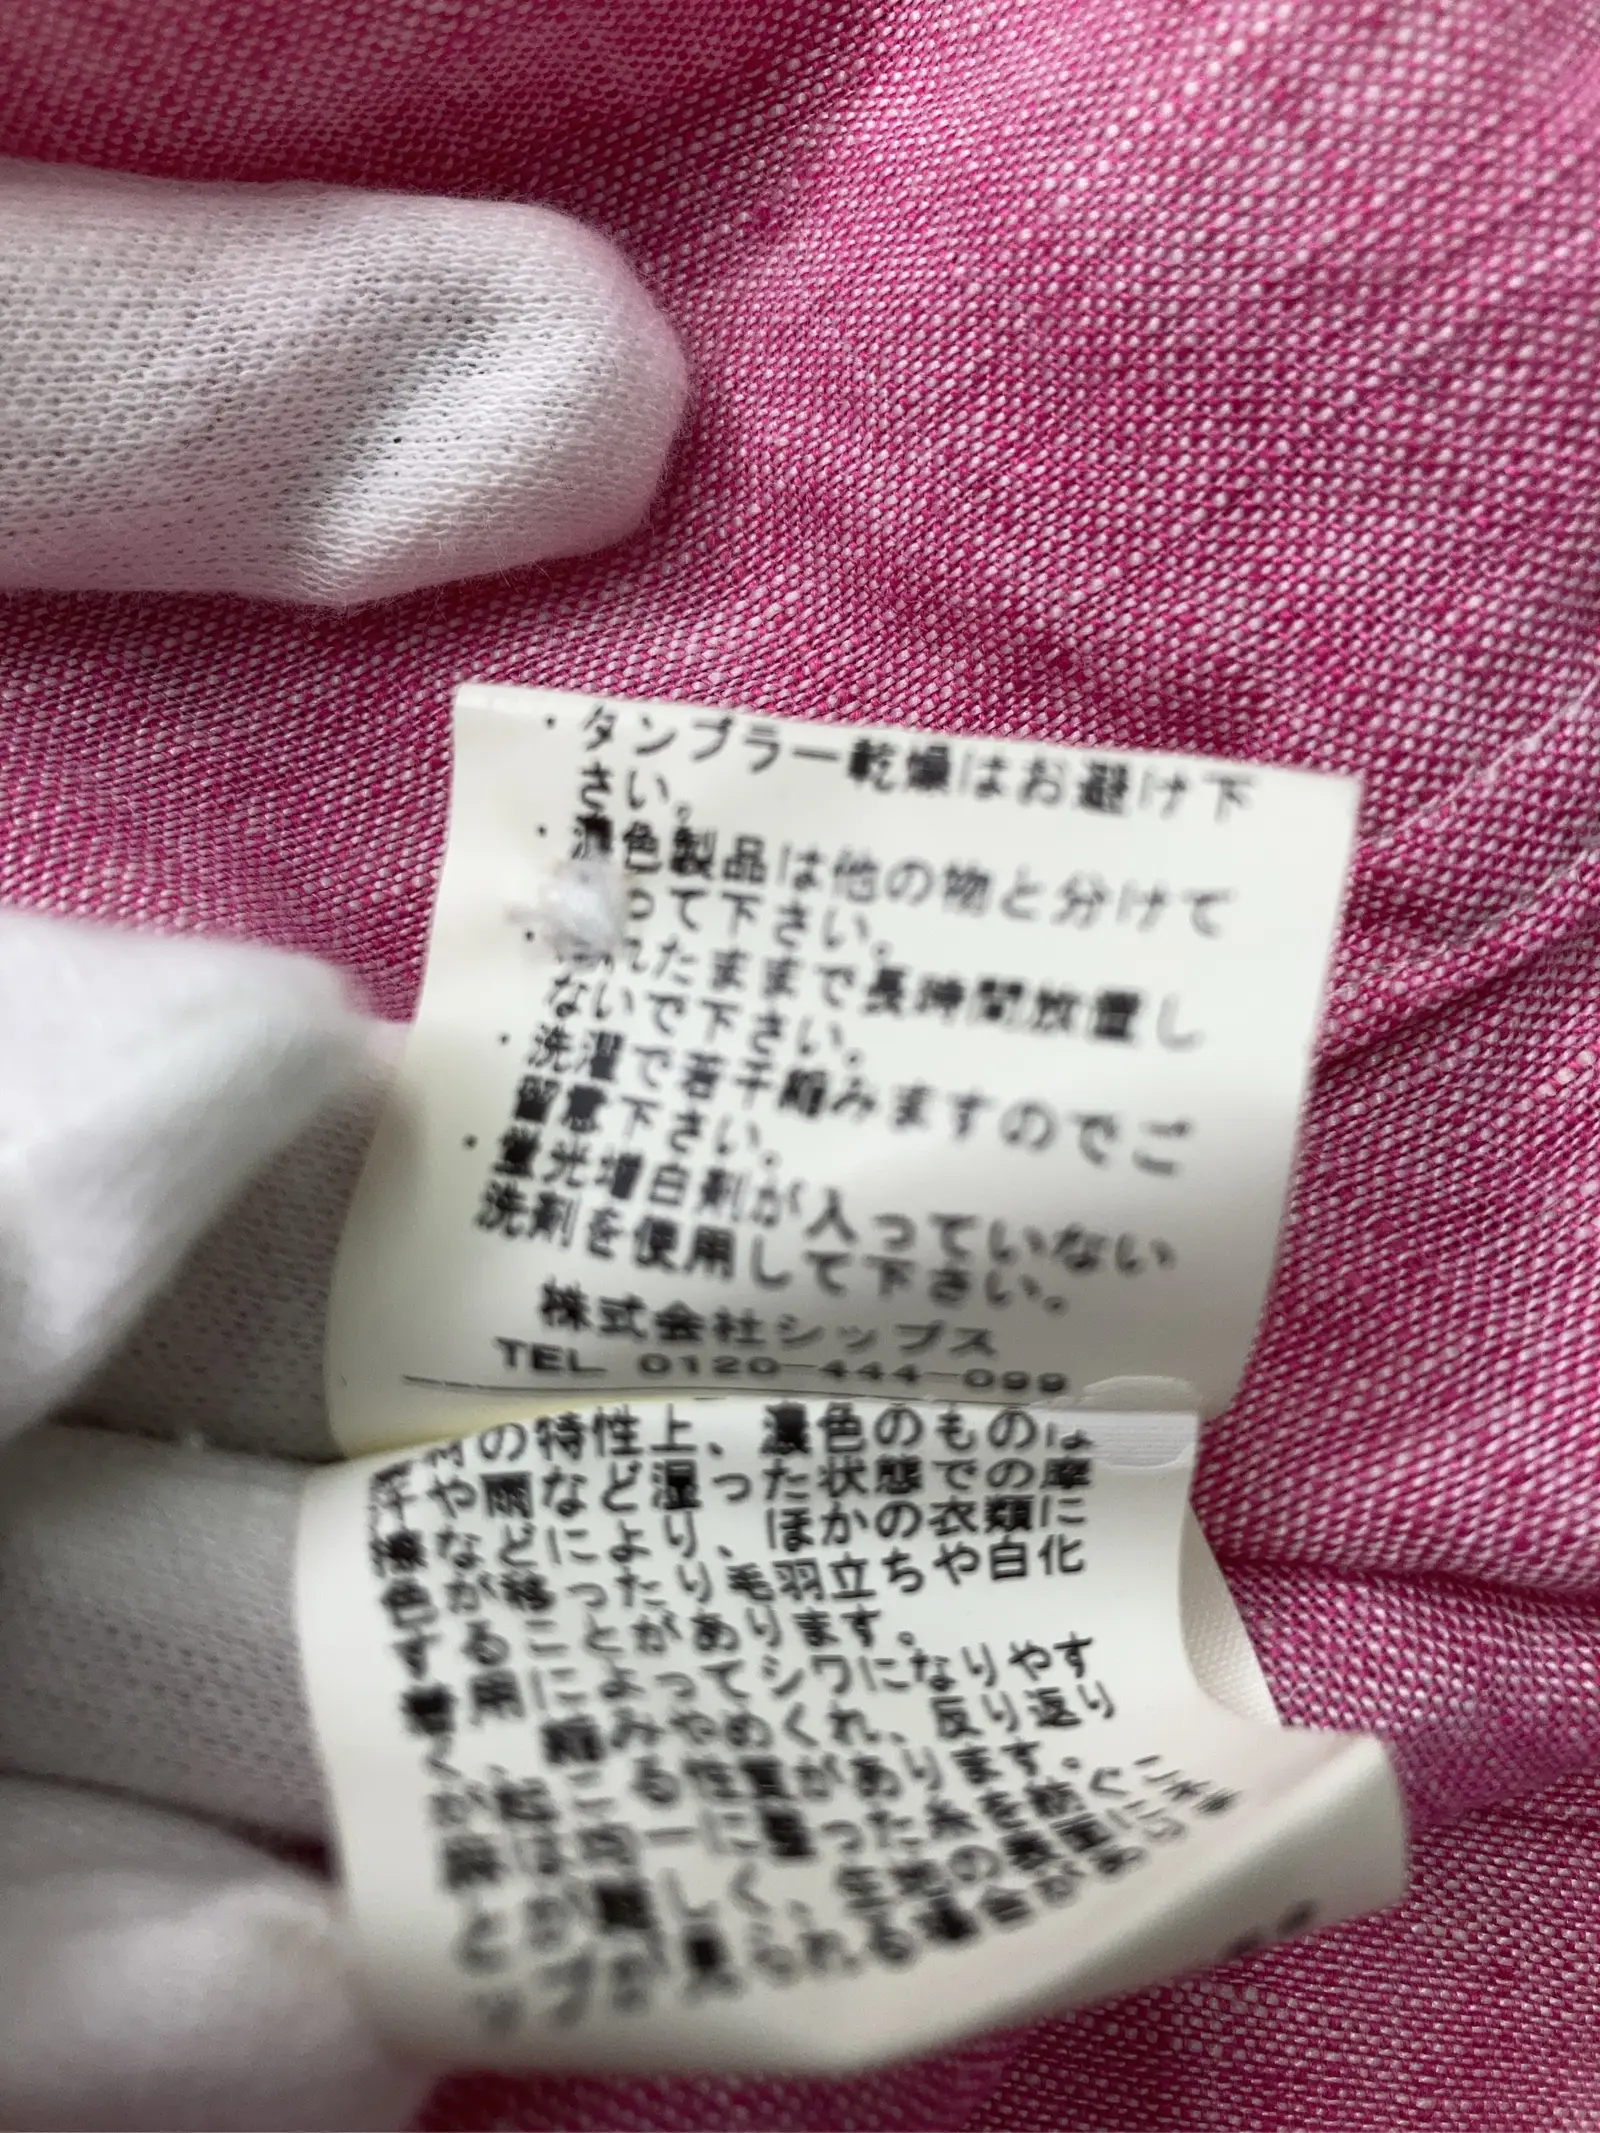 ・タンブラー乾燥はお避け下
さい。
・濃色製品は他の物と分けて
って下さい。
・れたままで長時間放置し
ないで下さい。
・洗濯で若干縮みますのでご
留意下さい。
・蛍光増白剤が入っていない
洗剤を使用して下さい。
株式会社シップス
TEL 0120-444-099
材の特性上、濃色のものは
汗や雨など湿った状態での摩
擦などにより、ほかの衣類に
色が移ったり毛羽立ちや白化
することがあります。
着用によってシワになりやす
く、縮みやめくれ、反り返り
が起こる性質があります。
麻は均一に揃った糸を紡ぐこ
とが難しく、生地の表面にネ
ップが見られる場合があります